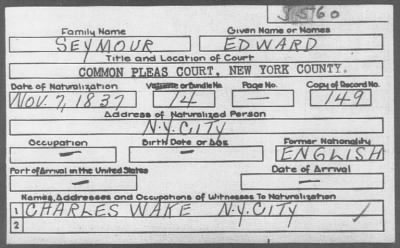 S 5760
Family Name Given Name or Names
SEYMOUR EDWARD
Title and Location of Court
COMMON PLEAS COURT, NEW YORK COUNTY.
Date of Naturalization Volume or Bundle No. Page No. Copy of Record No.
NOV. 7, 1837 14 — 149
Address of Naturalized Person
N.Y. CITY
Occupation Birth Date or Age Former Nationality
— — ENGLISH
Port of Arrival in the United States Date of Arrival
— —
Names, Addresses and Occupations of Witnesses To Naturalization
1 CHARLES WAKE N.Y. CITY /
2